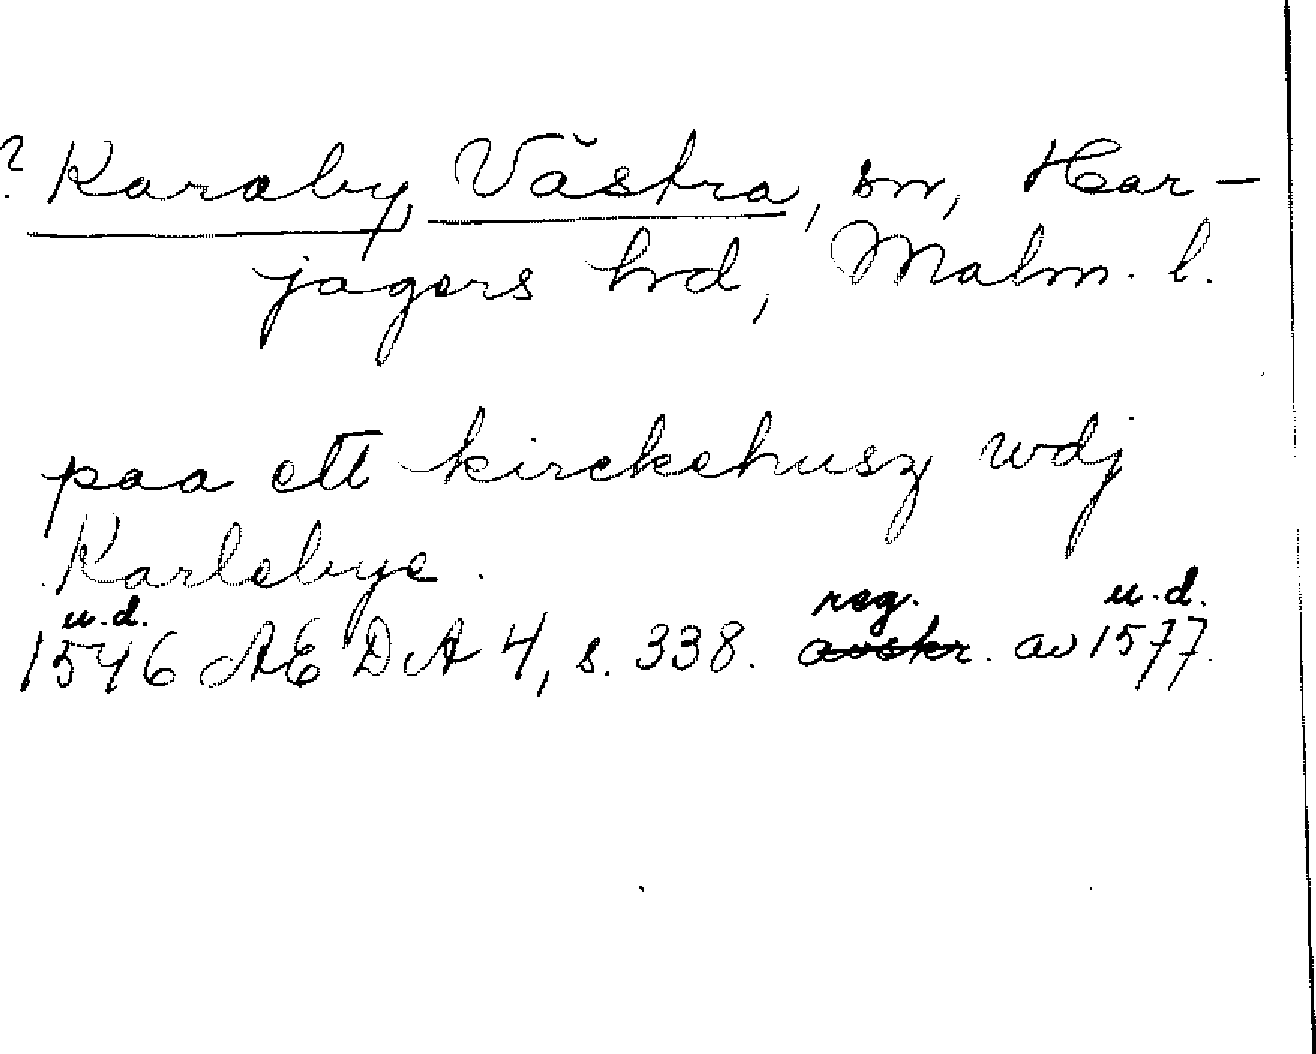 ? Karaby, Västra, sn, Har-
jagers hd, Malm. l.
paa ett kirckehusz wdj
Karlebye.
u.d. reg. u.d.
1546 AE DA 4, s. 338. avskr. av 1577.